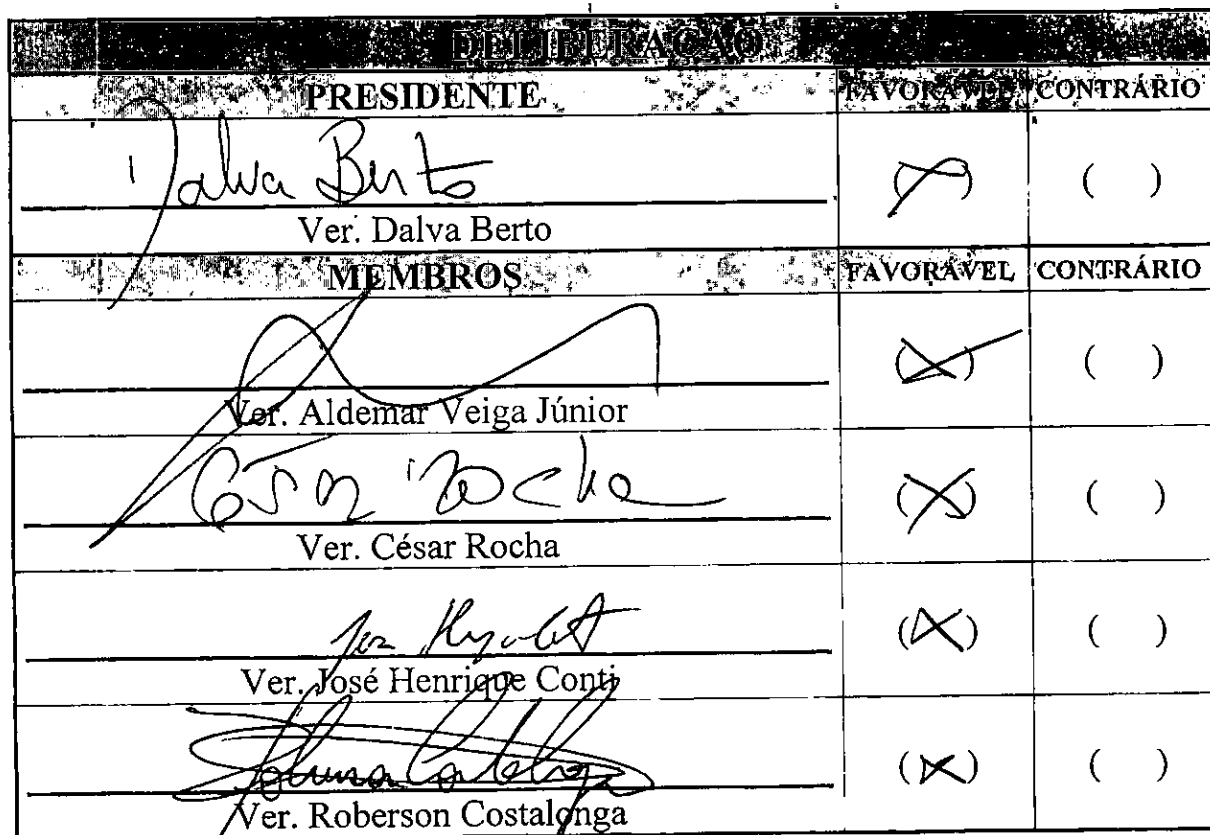 DELIBERAÇÃO
PRESIDENTE FAVORÁVEL CONTRÁRIO
Dalva Berto
( ) ( )
Ver. Dalva Berto
MEMBROS FAVORÁVEL CONTRÁRIO
(X) ( )
Ver. Aldemar Veiga Júnior
César Rocha
(X) ( )
Ver. César Rocha
(X) ( )
Ver. José Henrique Conti
(X) ( )
Ver. Roberson Costalonga